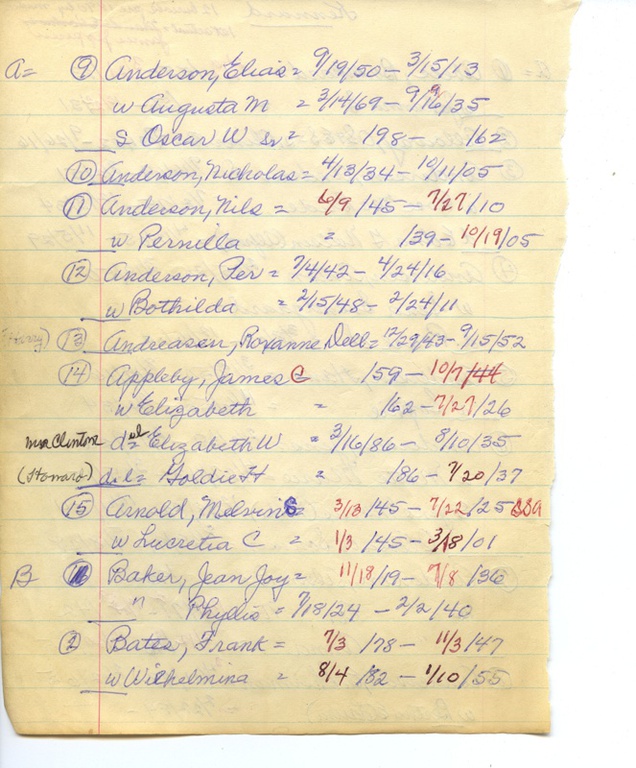 Kennard
A= ⑨ Anderson, Elias = 9/19/50 - 3/15/13
w Augusta M = 3/14/69 - 9/16/35
S Oscar W Sr = 198- 162
⑩ Anderson, Nicholas = 4/13/34 - 10/11/05
⑪ Anderson, Nils = 6/9 /45 - 7/27/10
w Pernilla = /39 - 10/19/05
⑫ Anderson, Per = 7/4/42 - 4/24/16
w Bothilda = 2/15/48 - 2/24/11
⑬ Andreasen, Roxanne Dell = 12/29/43 - 9/15/52
⑭ Appleby, James C 159 - 10/7/44
w Elizabeth = 162 - 7/27/26
Mrs Clinton d-il= Elizabeth W = 3/16/86 - 8/10/35
(Homard) d.il= Goldie H = /86 - 7/20/37
⑮ Arnold, Melvin S 3/13/45 - 7/22/25 SSA
w Lucretia C = 1/3 /45 - 3/8/01
B ① Baker, Jean Joy = 11/18/19 - 7/8/36
" Phylis = 7/18/24 - 2/2/40
② Bates, Frank = 7/3 /78 - 11/3/47
w Wilhelmina = 8/4 /82 - 1/10/55